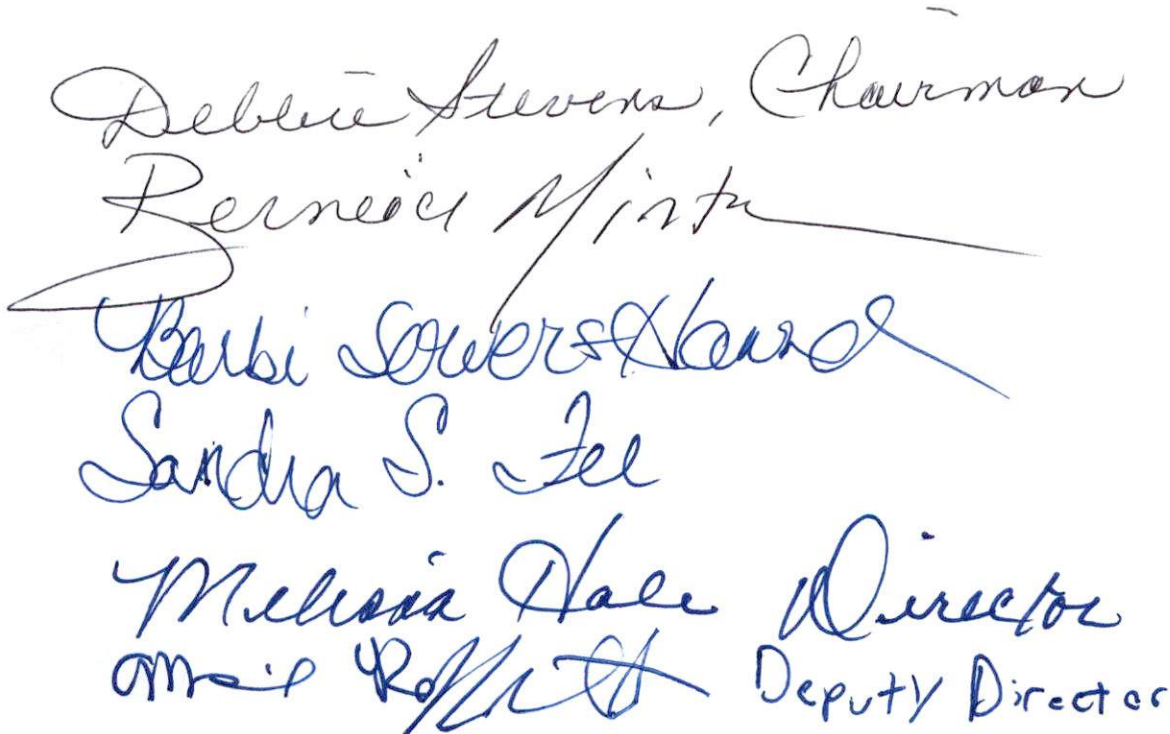 Debbie Stevens, Chairman
Berneice
Barbi Sowers
Sandra S. Fee
Melissa Hale Director
Deputy Director